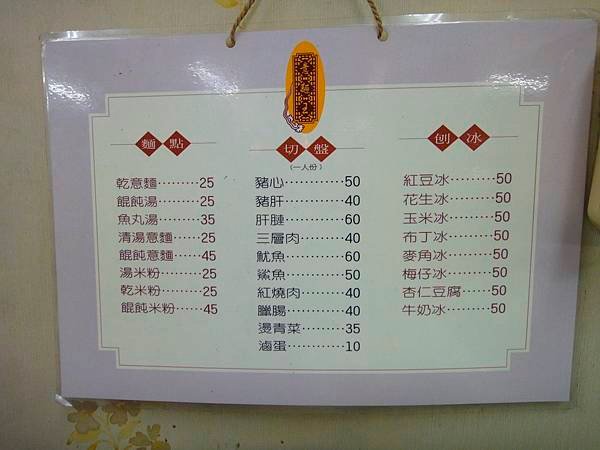 意麵王
麵點
乾意麵………25
餛飩湯………25
魚丸湯………35
清湯意麵……25
餛飩意麵……45
湯米粉………25
乾米粉………25
餛飩米粉……45
切盤
(一人份)
豬心…………50
豬肝…………40
肝腱…………60
三層肉………40
魷魚…………60
鯊魚…………50
紅燒肉………40
臘腸…………40
燙青菜………35
滷蛋…………10
刨冰
紅豆冰………50
花生冰………50
玉米冰………50
布丁冰………50
麥角冰………50
梅仔冰………50
杏仁豆腐……50
牛奶冰………50